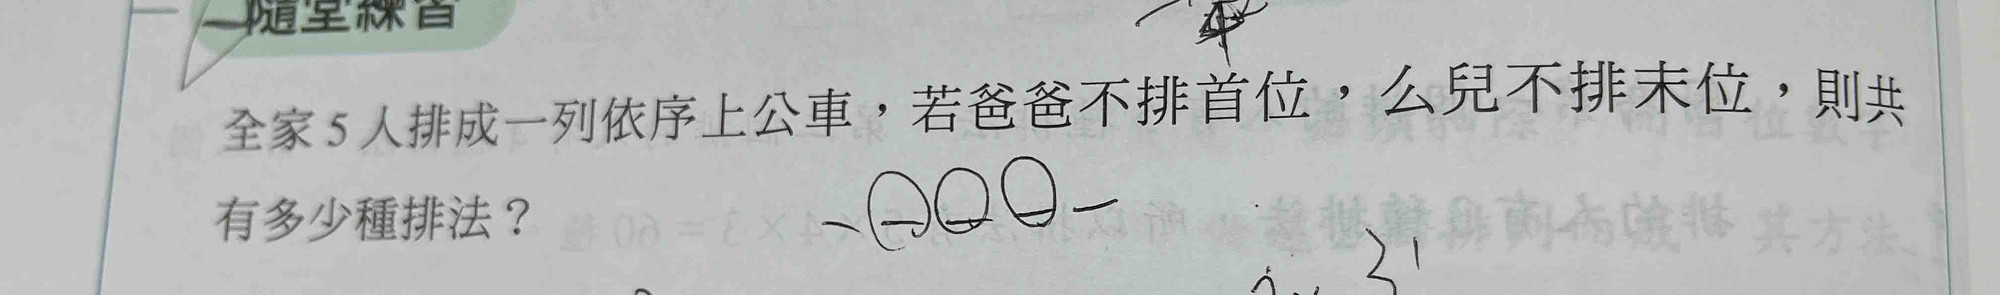 隨堂練習
全家5人排成一列依序上公車，若爸爸不排首位，么兒不排末位，則共
有多少種排法？
3!